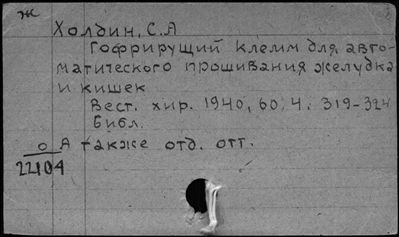 Ж
Холдин, С.А
Гофрирущий клемм для авто-
матического прошивания желудка
и кишек
Вест. хир. 1940, 60, 4. 319-324
Библ.
О А также отд. отт.
22104